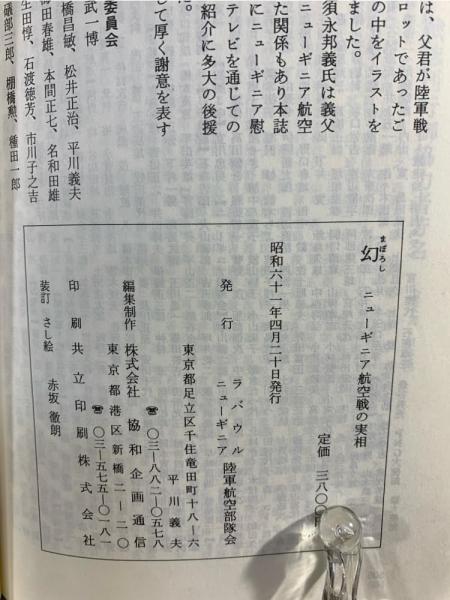 は、父君が陸軍戦
ロットであったご
の中をイラストを
ました。
須永邦義氏は義父
ニューギニア航空
た関係もあり本誌
にニューギニア慰
テレビを通じての
紹介に多大の後援
た。
して厚く謝意を表す
委員会
武一博
橋昌敏、松井正治、平川義夫
田春雄、本間正七、名和田雄
生田惇、石渡徳芳、市川子之吉
礒部三郎、棚橋勲、種田一郎
幻
まぼろし
ニューギニア航空戦の実相
定価 三八〇〇
昭和六十一年四月二十日発行
発行 ラバウル ニューギニア 陸軍航空部隊会
東京都足立区千住竜田町十八―六
平川義夫
☎ 〇三―八八二―〇五七八
編集制作 株式会社 協和企画通信
東京都港区新橋二―二〇
☎ 〇三―五七五―〇一八一
印刷 共立印刷株式会社
装訂 さし絵 赤坂徹朗